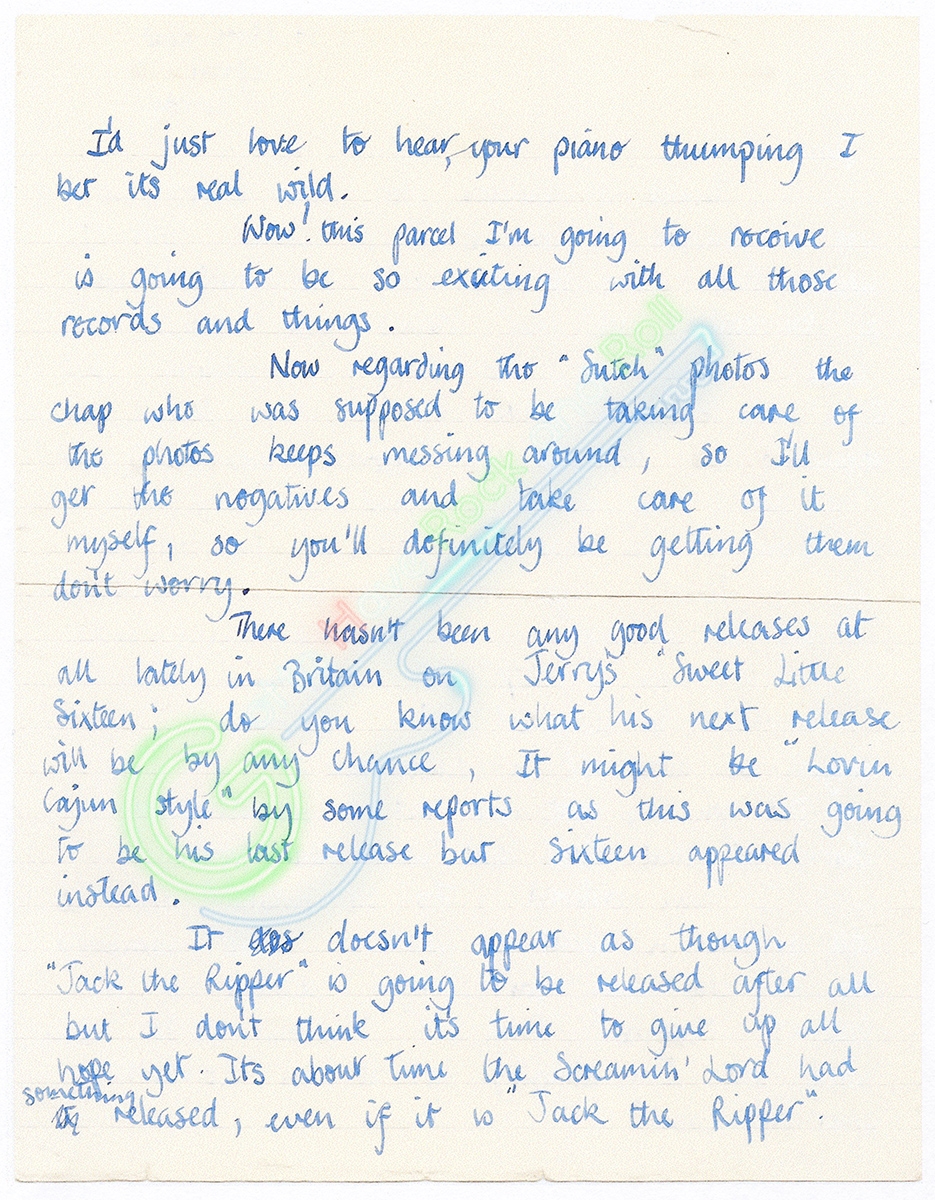 I'd just love to hear, your piano thumping I
bet its real wild.
Wow! this parcel I'm going to receive
is going to be so exciting with all those
records and things.
Now regarding the "Sutch" photos the
chap who was supposed to be taking care of
the photos keeps messing around, so I'll
get the negatives and take care of it
myself, so you'll definitely be getting them
don't worry.
There hasn't been any good releases at
all lately in Britain on Jerry's "Sweet Little
Sixteen; do you know what his next release
will be by any chance, It might be "Lovin
Cajun style" by some reports as this was going
to be his last release but Sixteen appeared
instead.
It doesn't appear as though
"Jack the Ripper" is going to be released after all
but I don't think it's time to give up all
hope yet. Its about time the Screamin' Lord had
something
released, even if it is "Jack the Ripper".
Rock
Roll